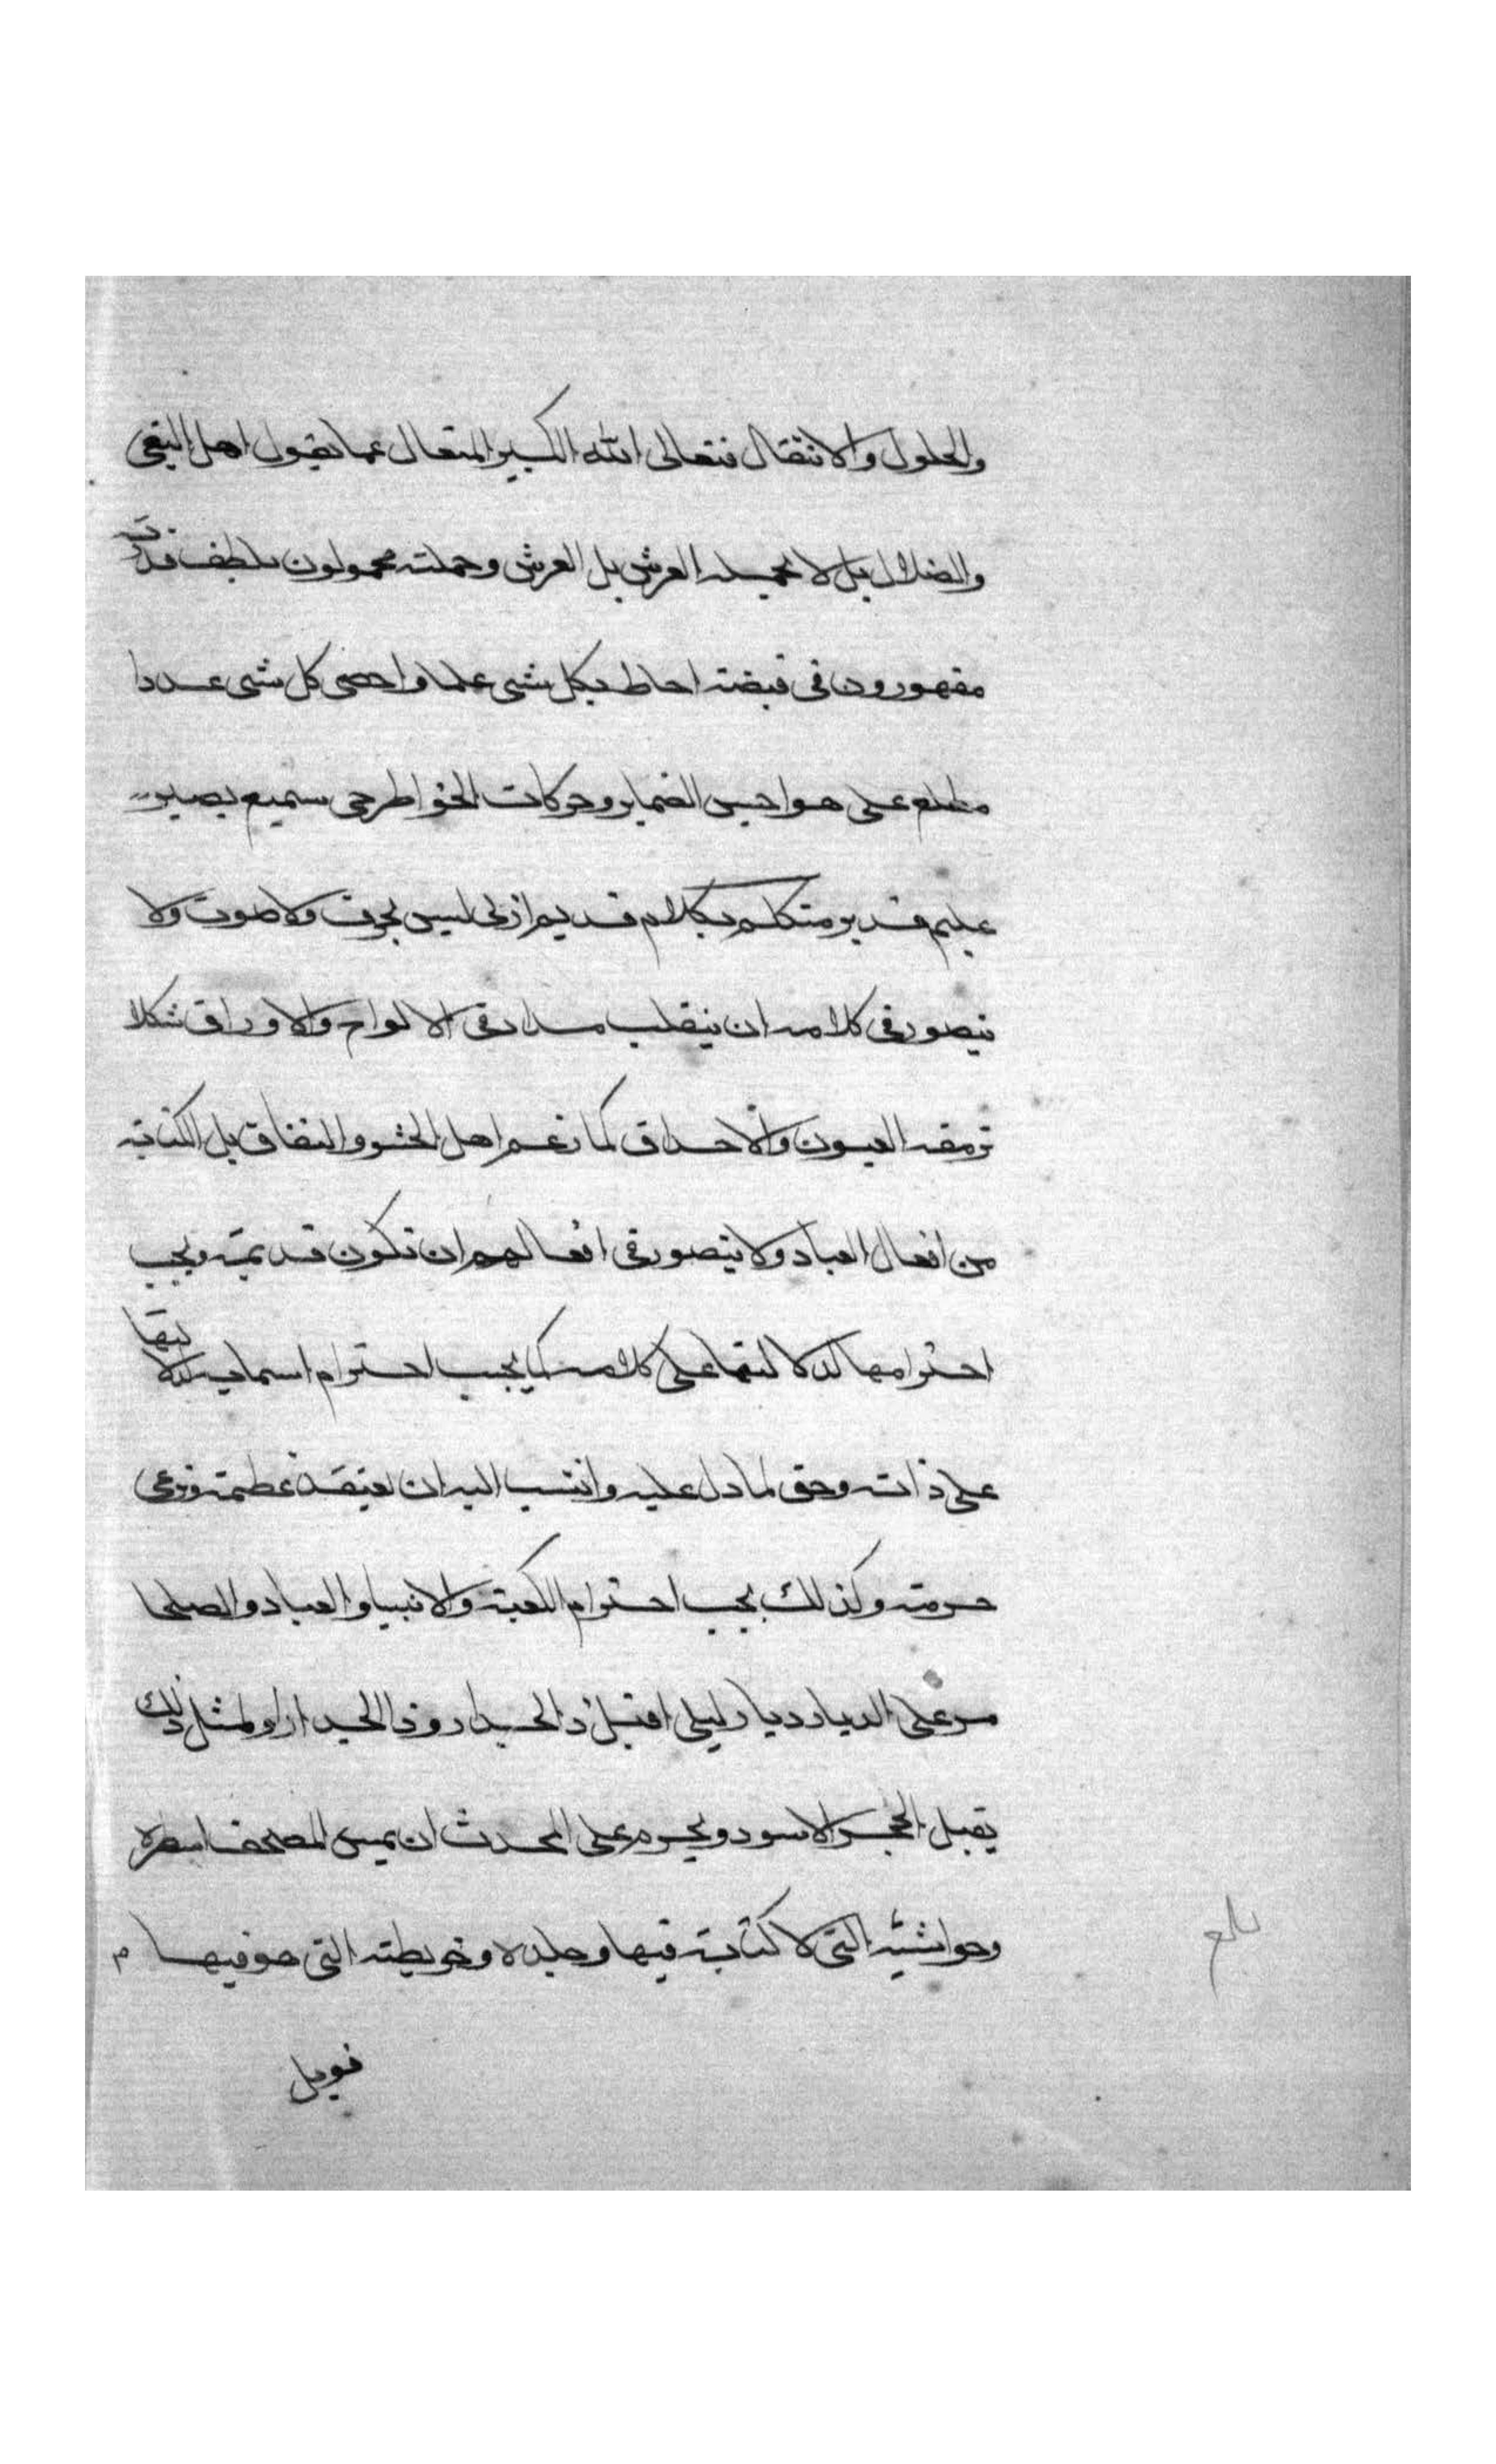 والحلول والانتقال فتعالى الله الكبير المتعال عما يقول اهل البغي
والضلال بل لا يحمله العرش بل العرش وحملته محمولون بلطف قدرته
مقهورون في قبضته احاط بكل شي علما واحصى كل شي عددا
مطلع على هواجس الضماير وحركات الخواطر حي سميع بصير
عليم قدير متكلم بكلام قديم ازلي ليس بحرف ولا صوت ولا
يتصور في كلامه ان ينقلب مدادا في الالواح والاوراق شكلا
ترمقه العيون والاحداق كما زعم اهل الحشو والنفاق بل الكتابة
من افعال العباد ولا يتصور في افعالهم ان تكون قديمة ويجب
احترامها لدلالتها على كلامه كما يجب احترام اسمايه لدلالتها
على ذاته وحق لما دل عليه وانتسب اليه ان يعتقد عظمته وترعى
حرمته وكذلك يجب احترام الكعبة والانبيا والعباد والصلحا
مر على الديار ديار ليلى اقبل ذا الجدار وذا الجدارا ولمثل ذلك
يقبل الحجر الاسود ويحرم على المحدث ان يمس المصحف اسطره
وحواشيه التي لا كتابة فيها وجلده وخريطته التي هو فيها
فويل
بلغ